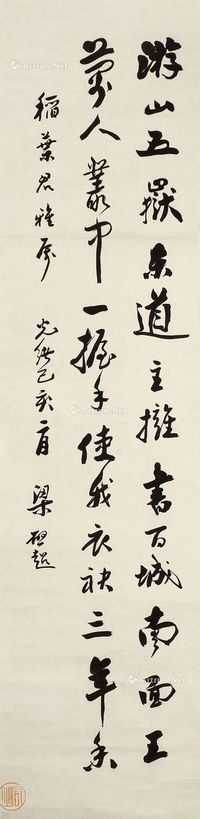 游山五嶽東道主擁書百城南面王
萬人叢中一握手使我衣袂三年香
稻葉君雅屬　光緒己亥二月　梁啟超